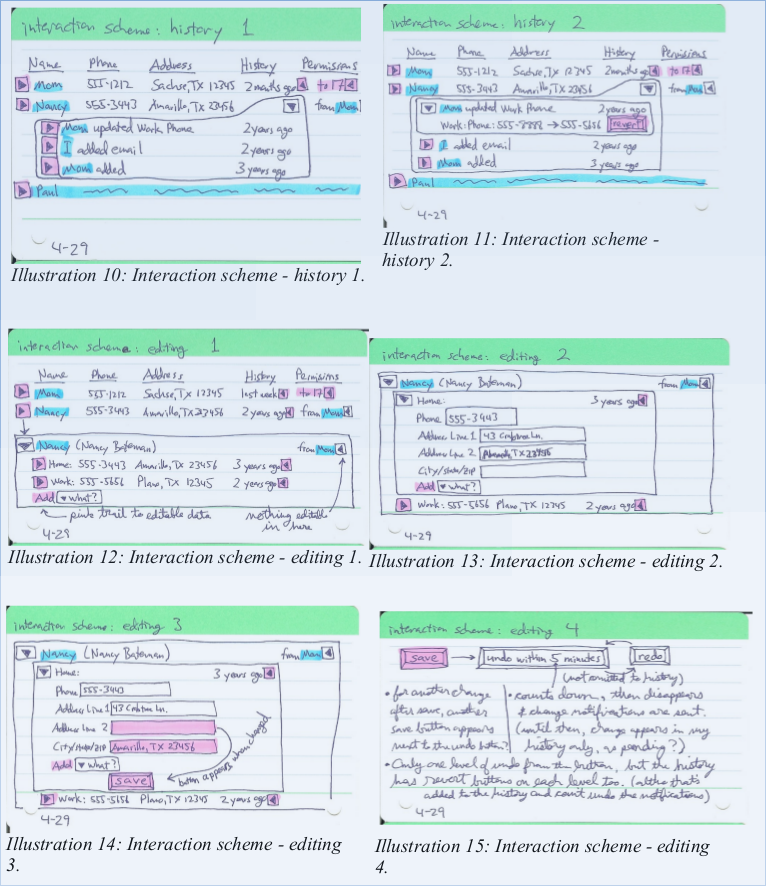 interaction scheme: history 1
Name Phone Address History Permissions
Mom 555-1212 Sachse, TX 12345 2 months ago to 17
Nancy 555-3443 Amarillo, TX 23456 from Mom
Mom updated Work Phone 2 years ago
I added email 2 years ago
Mom added 3 years ago
Paul
4-29
Illustration 10: Interaction scheme - history 1.
interaction scheme: history 2
Name Phone Address History Permissions
Mom 555-1212 Sachse, TX 12345 2 months ago to 17
Nancy 555-3443 Amarillo, TX 23456 from Mom
Mom updated Work Phone 2 years ago
Work: Phone: 555-8888 → 555-5656 revert
I added email 2 years ago
Mom added 3 years ago
Paul
4-29
Illustration 11: Interaction scheme -
history 2.
interaction scheme: editing 1
Name Phone Address History Permissions
Mom 555-1212 Sachse, TX 12345 last week to 17
Nancy 555-3443 Amarillo, TX 23456 2 years ago from Mom
Nancy (Nancy Bateman) from Mom
Home: 555-3443 Amarillo, TX 23456 3 years ago
Work: 555-5656 Plano, TX 12345 2 years ago
Add what?
← pink trail to editable data nothing editable
in here
4-29
Illustration 12: Interaction scheme - editing 1.
interaction scheme: editing 2
Nancy (Nancy Bateman) from Mom
Home: 3 years ago
Phone 555-3443
Address Line 1 43 Crabtree Ln.
Address Line 2 TX 23456
City/state/ZIP
Add what?
Work: 555-5656 Plano, TX 12345 2 years ago
4-29
Illustration 13: Interaction scheme - editing 2.
interaction scheme: editing 3
Nancy (Nancy Bateman) from Mom
Home: 3 years ago
Phone 555-3443
Address Line 1 43 Crabtree Ln.
Address Line 2
City/state/ZIP Amarillo, TX 23456
Add what?
save button appears when changed
Work: 555-5656 Plano, TX 12345 2 years ago
4-29
Illustration 14: Interaction scheme - editing
3.
interaction scheme: editing 4
save → undo within 5 minutes redo
(not omitted to history)
• for another change
after save, another
save button appears
next to the undo button?
• counts down, then disappears
& change notifications are sent.
(until then, change appears in my
history only, as pending?)
• Only one level of undo from the button, but the history
has revert buttons on each level too. (altho that's
added to the history and can't undo the notifications)
4-29
Illustration 15: Interaction scheme - editing
4.